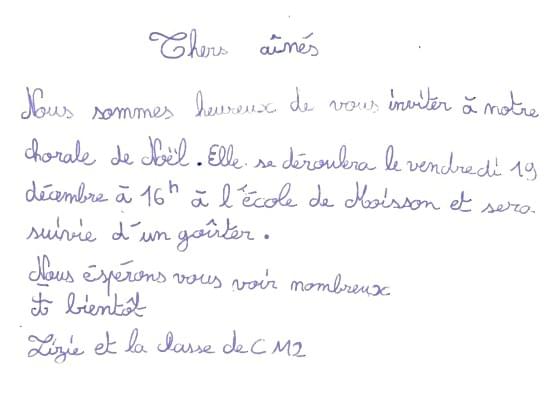 Chers aînés
Nous sommes heureux de vous inviter à notre
chorale de Noël. Elle se déroulera le vendredi 19
décembre à 16h à l'école de Moisson et sera
suivie d'un goûter.
Nous éspérons vous voir nombreux
à bientôt
Lizie et la classe de CM2